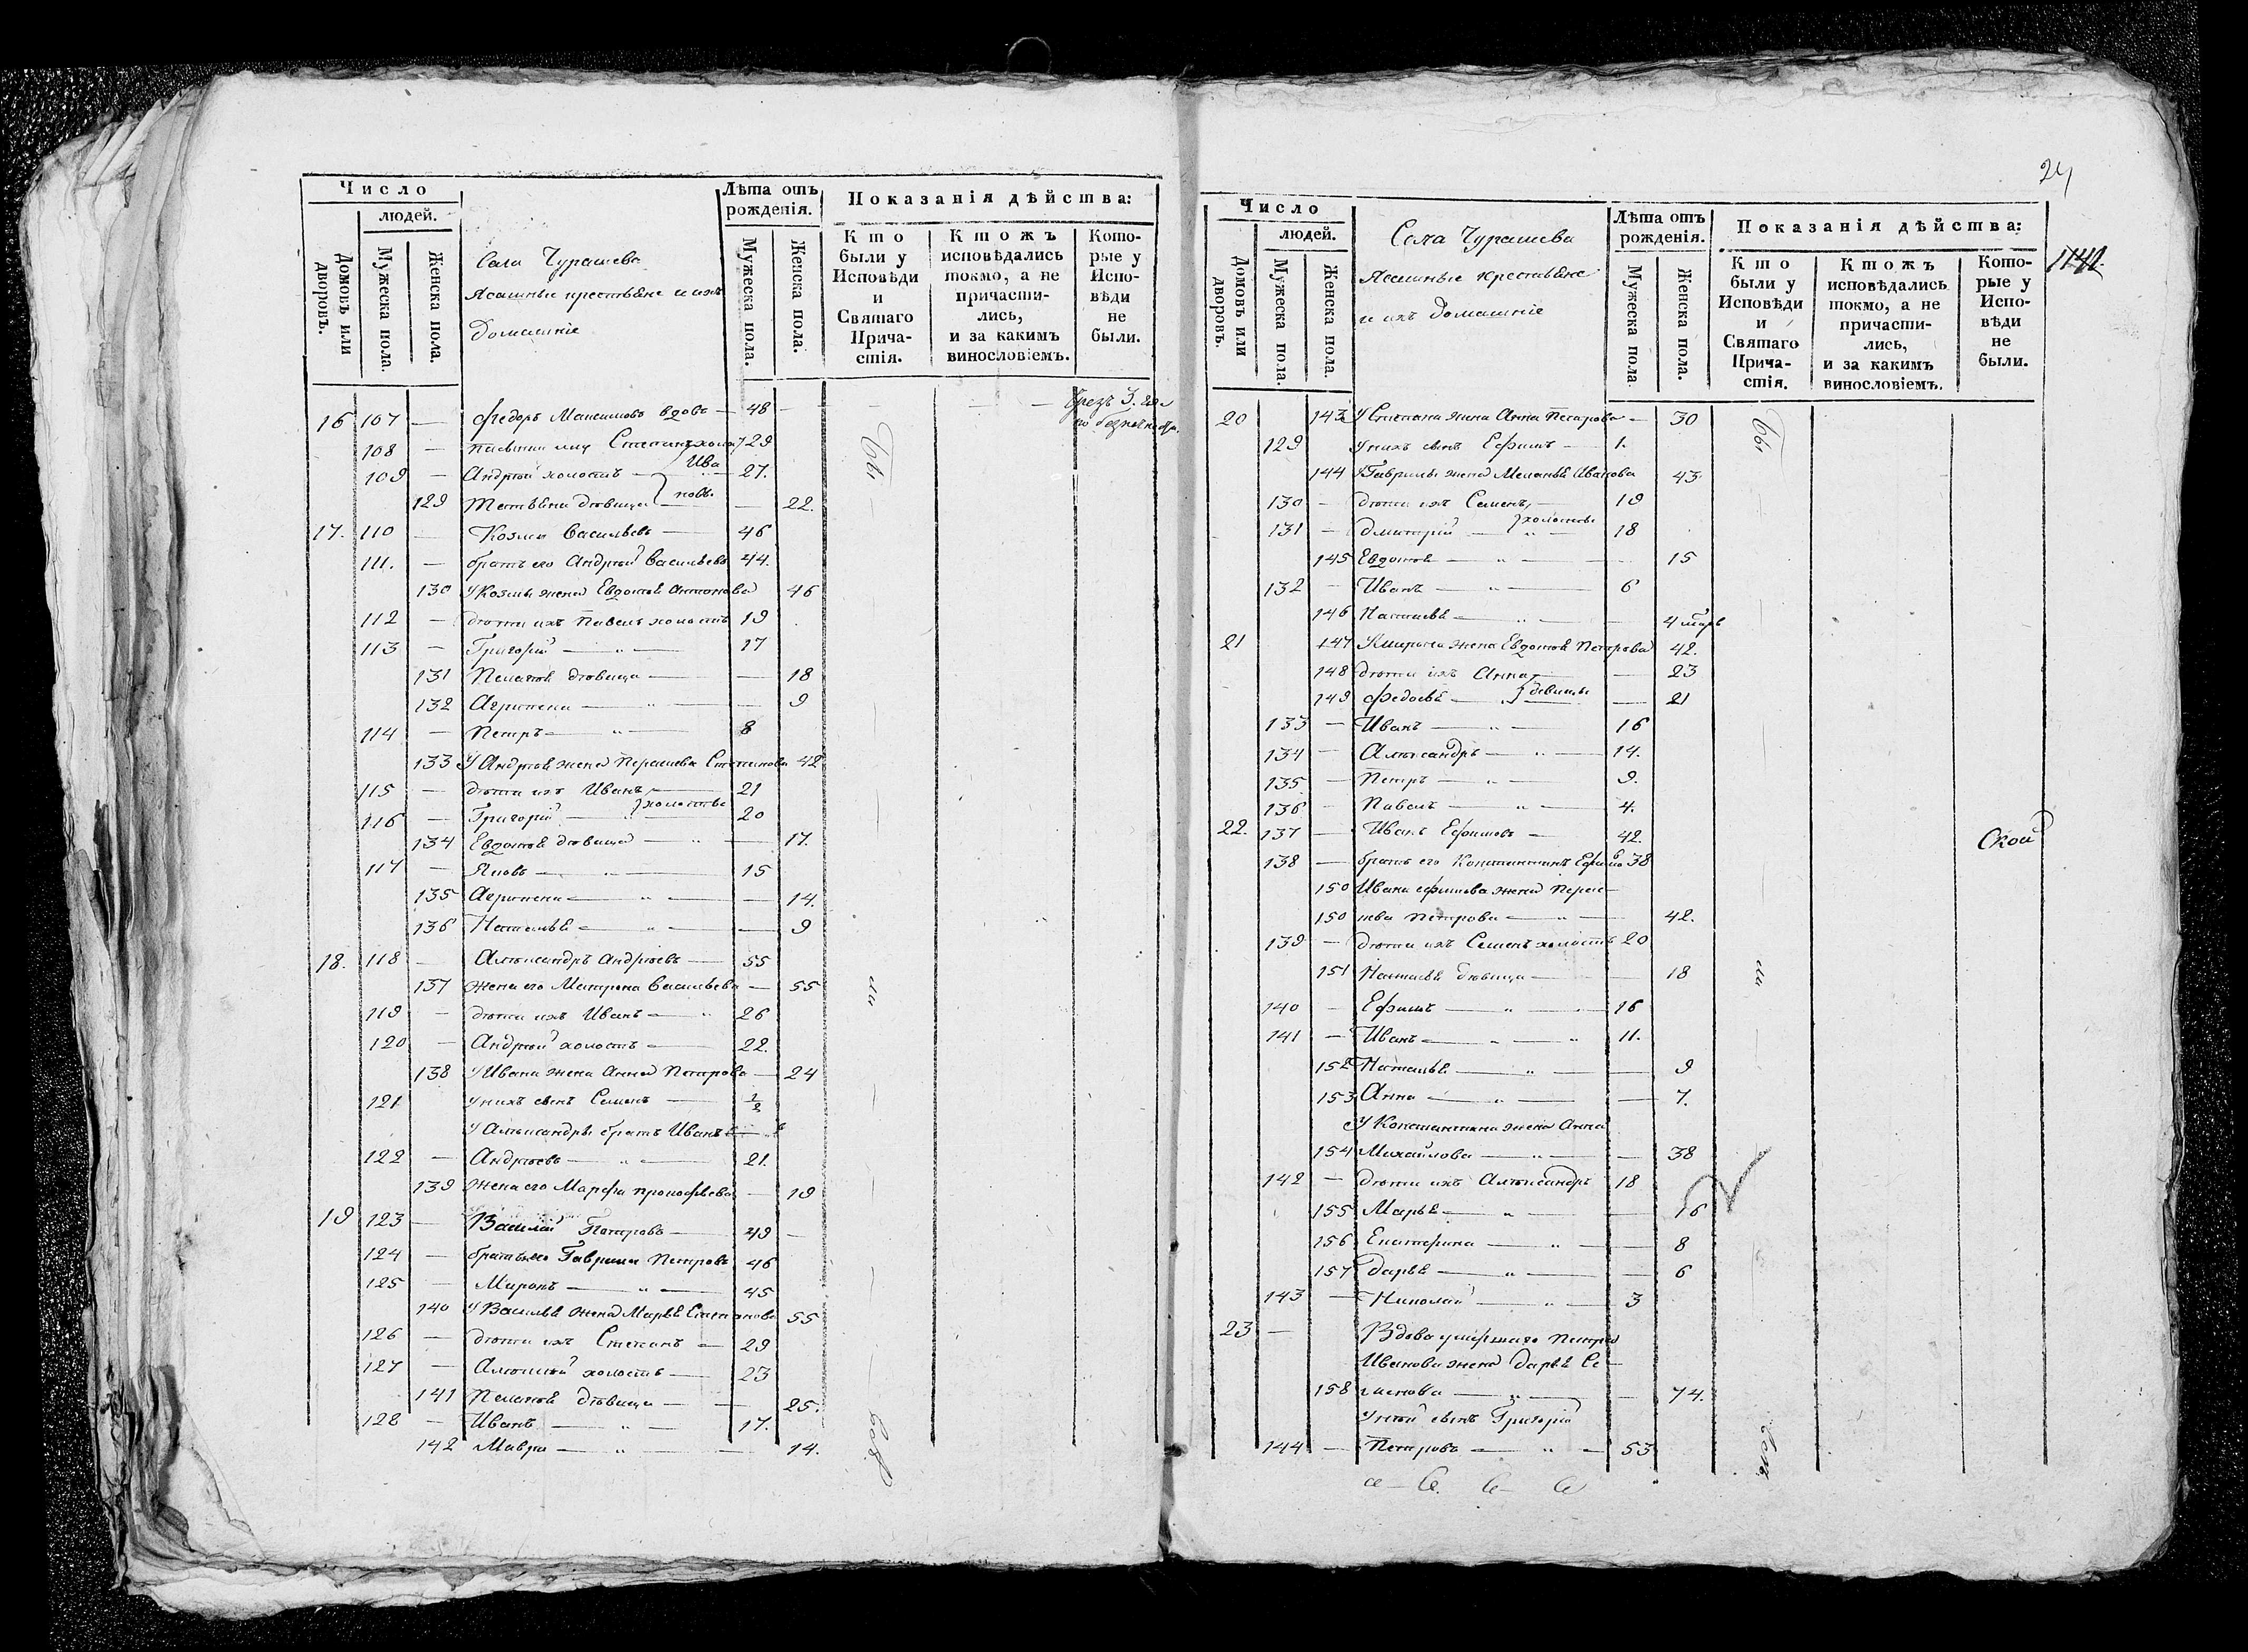 Число
людей.
Домовъ или дворовъ.
Мужеска пола.
Женска пола.
Села Чурашева
Ясашные крестьяне и ихъ
домашніе
Лѣта отъ рожденія.
Мужеска пола.
Женска пола.
Показанія дѣйства:
Кто были у Исповѣди и Святаго Причастія.
Ктожъ исповѣдались токмо, а не причастились, и за какимъ винословіемъ.
Которые у Исповѣди не были.
16 107 — Федоръ Максимовъ вдовъ — 48 —
108 — Степанъ холос 29
109 — Андрей холостъ — Ива 27.
129 дѣвица новы — 22.
17. 110 — Козма Васильевъ — 46
111. — братъ его Андрей Васильевъ 44.
130 У Козмы жена Евдотья Антонова 46
112 — дѣти ихъ Павелъ холостъ 19
113 — Григорій — " — 17
131 Пелагея дѣвица — — 18
132 Агрипена — " — — 9
114 — Петръ — " — 8
133 У Андрея жена Параскева Степанова 42
115 — дѣти ихъ Иванъ — 21
116 — Григорій — холосты 20
134 Евдотья дѣвица — " — 17.
117 — Яковъ — " — 15
135 Агрипена — " — — 14.
136 Наталья — " — — 9
18. 118 — Александръ Андреевъ — 55
137 жена его Матрона Васильева — 55
119 — дѣти ихъ Иванъ — " 26
120 — Андрей холостъ — 22.
138 У Ивана жена Анна Петрова — 24
121 у нихъ сынъ Семенъ — 1/2
У Александры братъ Иванъ
122 — Андреевъ — " — 21.
139 жена его Марфа Прокофьева — 19
19 123 — Василій Петровъ — 49 —
124 — братья его Гаврила Петровъ 46
125 — Миронъ — " — 45
140 У Василья жена Марья Степанова 55
126 — дѣти ихъ Степанъ — 29
127 — Алексѣй холостъ — 23
141 Пелагея дѣвица — — 25.
128 — Иванъ — " — 17.
142 Мавра — " — — 14.
бы
ли
всѣ
24
1142.
Число
людей.
Домовъ или дворовъ.
Мужеска пола.
Женска пола.
Села Чурашева
Ясашные крестьяне
и ихъ домашніе
Лѣта отъ рожденія.
Мужеска пола
Женска пола.
Показанія дѣйства:
Кто были у Исповѣди и Святаго Причастія.
Ктожъ исповѣдались токмо, а не причастились, и за какимъ винословіемъ.
Которые у Исповѣди не были.
20 143 У Степана жена Анна Петрова — 30
129 у нихъ сынъ Ефимъ — 1.
144 У Гаврилы жена Меланья Иванова 43
130 — дѣти ихъ Семенъ, — 19
131 — Дмитрій — холосты " — 18
145 Евдотья — " — — 15
132 — Иванъ — " — 6
146 Наталья — " — — 4
21 147 У Мирона жена Евдотья Петрова 42.
148 дѣти ихъ Анна — — 23
149 Федосья — девицы — 21
133 — Иванъ — " — 16
134 — Александръ — " — 14.
135 — Петръ — " — 9.
136 — Павелъ — " — 4.
22. 137 — Иванъ Ефимовъ — 42.
138 — братъ его Константинъ Ефимовъ 38
150 Ивана Ефимова жена Парас-
150 кева Петрова — " — 42.
139 — дѣти ихъ Семенъ холостъ 20
151 Наталья дѣвица — — 18
140 — Ефимъ — " — 16
141 — Иванъ — " — " 11.
152 Наталья — " — — 9
153 Анна — " — — 7.
У Константина жена Анна
154 Михайлова — " — — 38
142 — дѣти ихъ Александръ 18
155 Марья — " — — 16
156 Екатерина — " — — 8
157 Дарья — " — — 6
143 — Николай — " — 3
23 — Вдова умершаго Петра
Иванова жена Дарья Се-
158 — " — — 74.
У ней сынъ Григорій
144 — Петровъ — " — 53
бы
ли
всѣ
ской